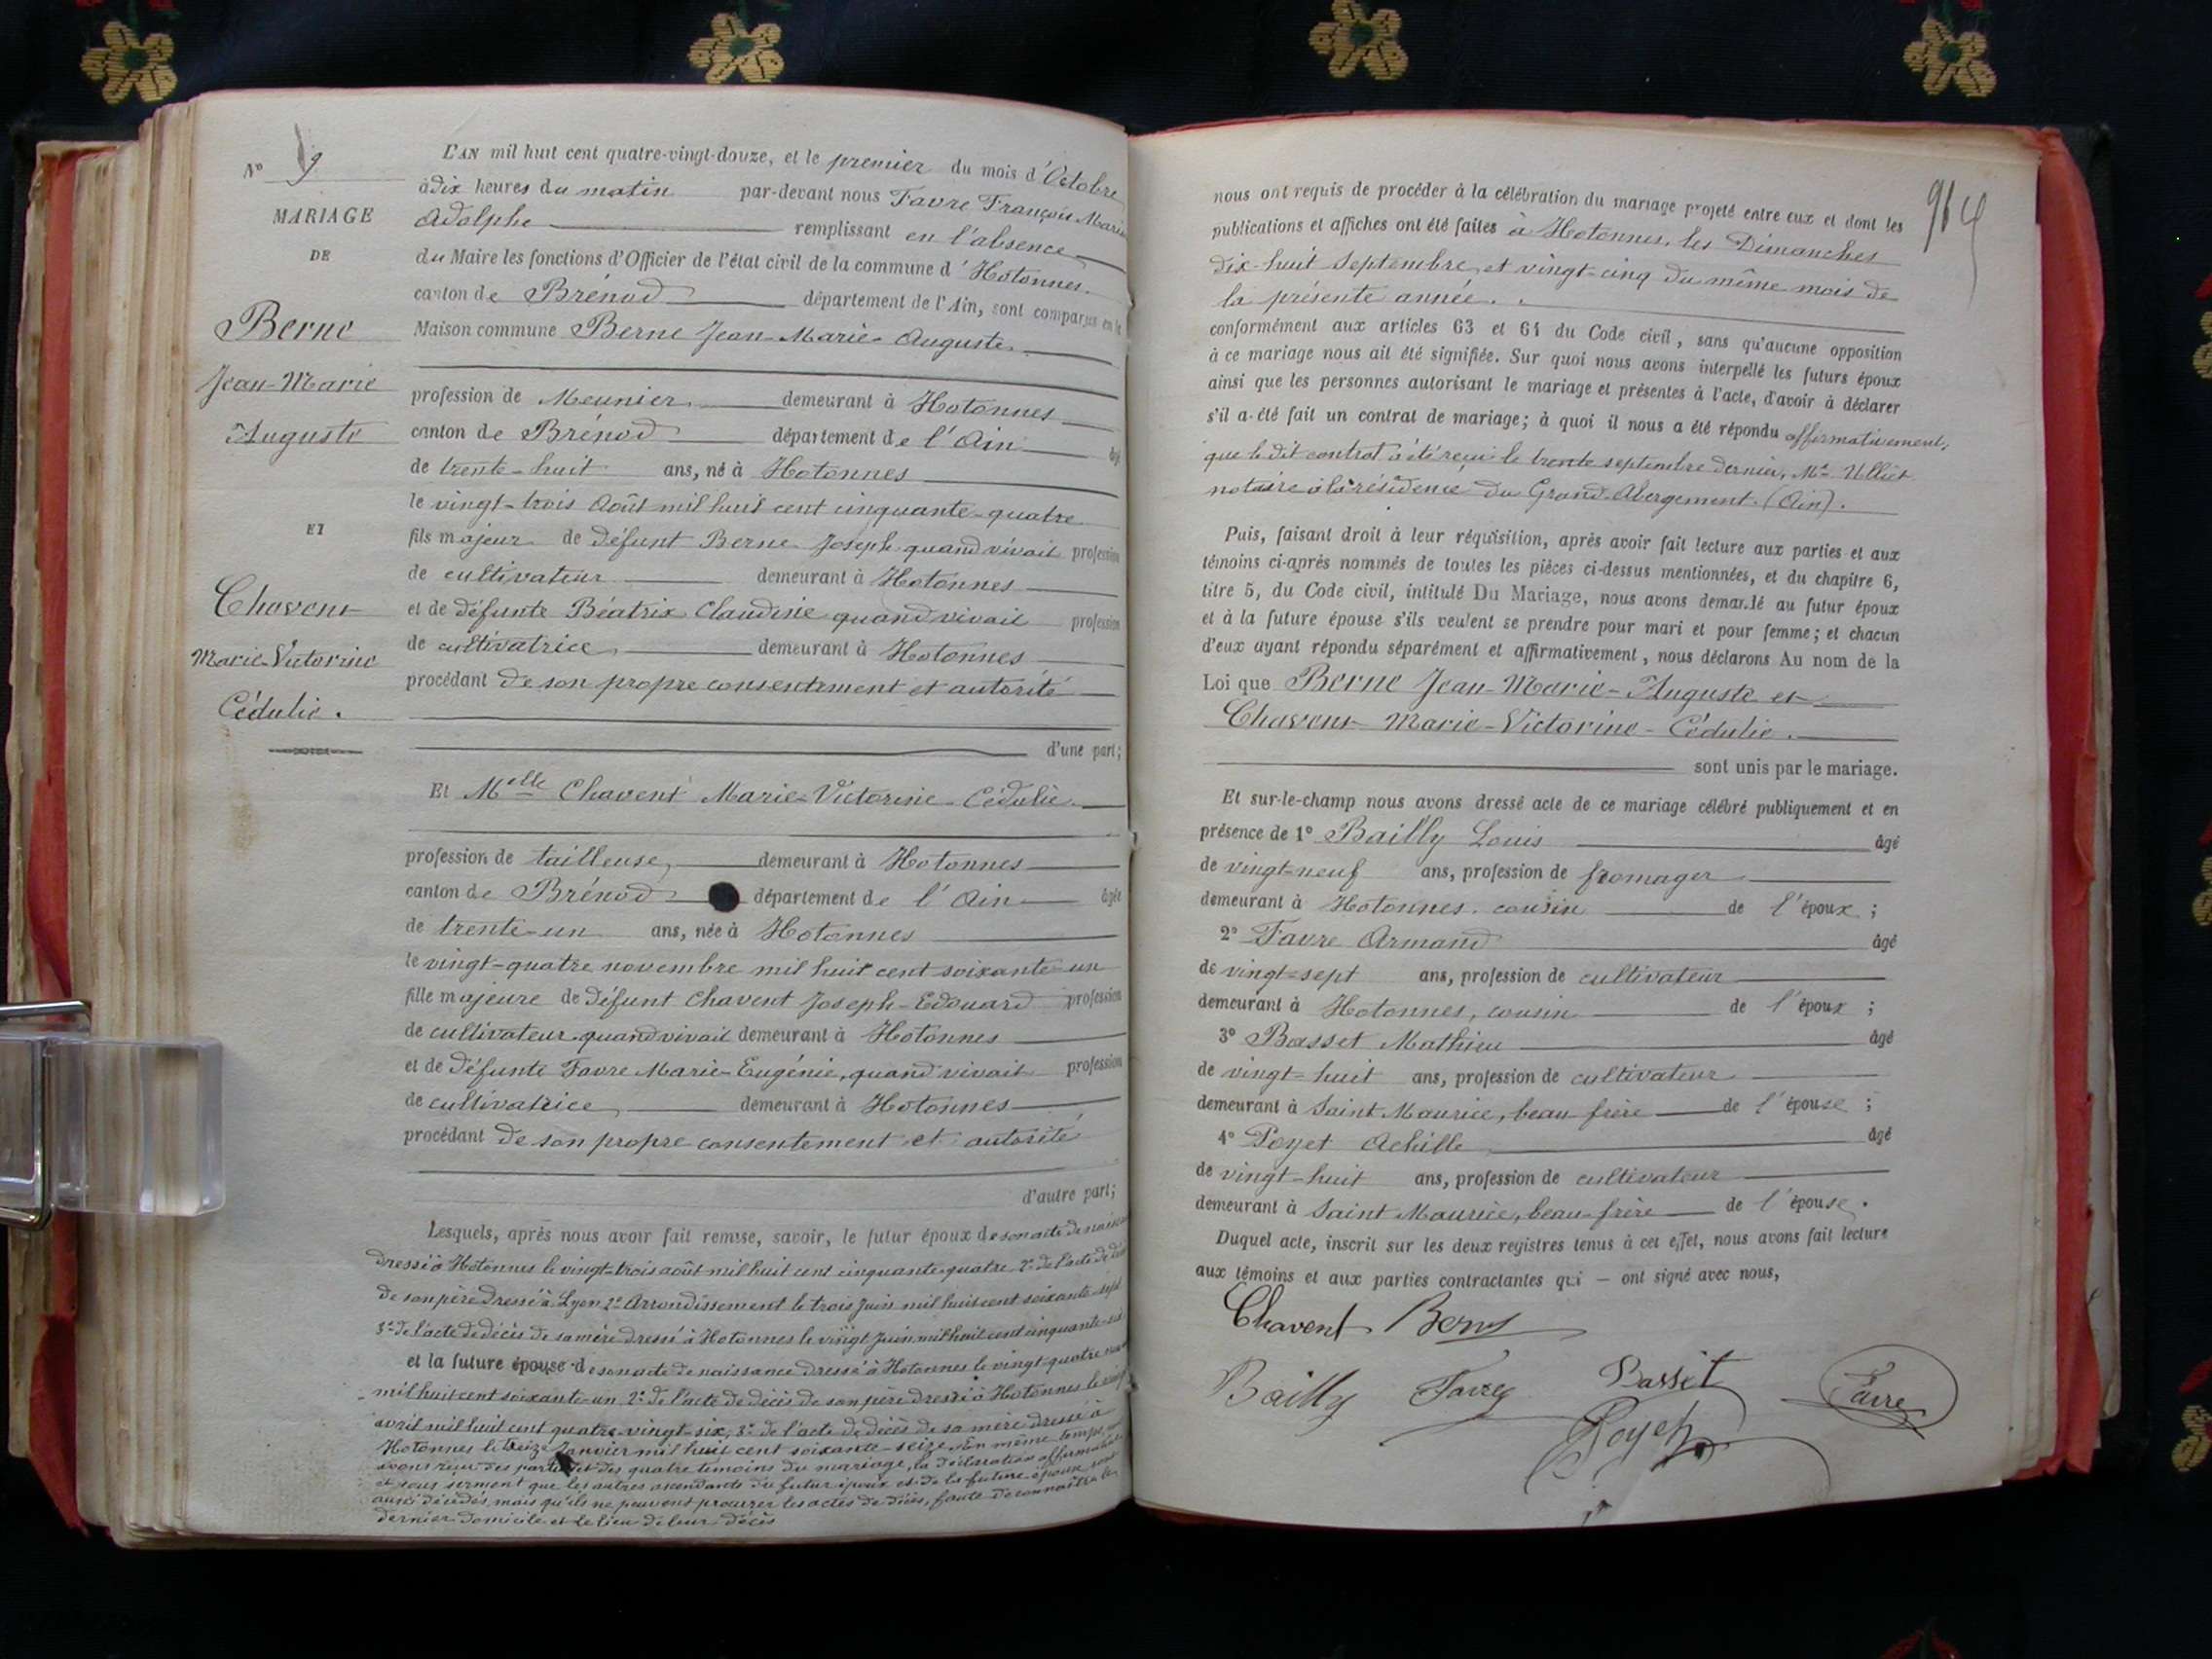 N° 9
MARIAGE
DE
Berne
Jean-Marie
Auguste
ET
Chavent
Marie-Victorine
Cédulie.
L'AN mil huit cent quatre-vingt-douze, et le premier du mois d'Octobre
à dix heures du matin par-devant nous Favre François Marie
Adolphe remplissant en l'absence
du Maire les fonctions d'Officier de l'état civil de la commune d'Hotonnes.
canton de Brénod département de l'Ain, sont comparus en la
Maison commune Berne Jean-Marie-Auguste
profession de Meunier demeurant à Hotonnes
canton de Brénod département de l'Ain âgé
de trente-huit ans, né à Hotonnes
le vingt-trois Août mil huit cent cinquante-quatre
fils majeur de défunt Berne Joseph quand vivait profession
de cultivateur demeurant à Hotonnes
et de défunte Béatrix Claudine quand vivait profession
de cultivatrice, demeurant à Hotonnes
procédant de son propre consentement et autorité
d'une part;
Et Melle Chavent Marie-Victorine-Cédulie.
profession de tailleuse, demeurant à Hotonnes
canton de Brénod département de l'Ain âgée
de trente-un ans, née à Hotonnes
le vingt-quatre novembre mil huit cent soixante-un
fille majeure de défunt Chavent Joseph-Edouard profession
de cultivateur quand vivait demeurant à Hotonnes
et de défunte Favre Marie-Eugénie, quand vivait profession
de cultivatrice, demeurant à Hotonnes
procédant de son propre consentement et autorité
d'autre part;
Lesquels, après nous avoir fait remise, savoir, le futur époux de son acte de
dressé à Hotonnes le vingt-trois août mil huit cent cinquante quatre 2° de l'acte de
de son père dressé à Lyon 2e Arrondissement le trois Juin mil huit cent soixante-sept
3° de l'acte de décès de sa mère dressé à Hotonnes le vingt Juin mil huit cent cinquante-six
et la future épouse de son acte de naissance dressé à Hotonnes le vingt-quatre
mil huit cent soixante-un 2° de l'acte de décès de son père dressé à Hotonnes le
avril mil huit cent quatre-vingt-six, 3° de l'acte de décès de sa mère dressé à
Hotonnes le treize Janvier mil huit cent soixante-seize. En même temps
avons reçu des parties et des quatre témoins du mariage, la déclaration affirmative
et sous serment que les autres ascendants du futur époux et de la future épouse sont
aussi décédés, mais qu'ils ne peuvent procurer les actes de décès, faute de connaître le
dernier domicile et le lieu de leur décès
964
nous ont requis de procéder à la célébration du mariage projeté entre eux et dont les
publications et affiches ont été faites à Hotonnes, les Dimanches
dix-huit Septembre et vingt-cinq du même mois de
la présente année.
conformément aux articles 63 et 64 du Code civil, sans qu'aucune opposition
à ce mariage nous ait été signifiée. Sur quoi nous avons interpellé les futurs époux
ainsi que les personnes autorisant le mariage et présentes à l'acte, d'avoir à déclarer
s'il a été fait un contrat de mariage; à quoi il nous a été répondu affirmativement,
que le dit contrat a été reçu le trente septembre dernier, Me Ulliet
notaire à la résidence du Grand-Abergement. (Ain).
Puis, faisant droit à leur réquisition, après avoir fait lecture aux parties et aux
témoins ci-après nommés de toutes les pièces ci-dessus mentionnées, et du chapitre 6,
titre 5, du Code civil, intitulé Du Mariage, nous avons demandé au futur époux
et à la future épouse s'ils veulent se prendre pour mari et pour femme; et chacun
d'eux ayant répondu séparément et affirmativement, nous déclarons Au nom de la
Loi que Berne Jean-Marie-Auguste et
Chavent Marie-Victorine-Cédulie.
sont unis par le mariage.
Et sur-le-champ nous avons dressé acte de ce mariage célébré publiquement et en
présence de 1° Bailly Louis âgé
de vingt-neuf ans, profession de fromager
demeurant à Hotonnes, cousin de l'époux;
2° Favre Armand âgé
de vingt-sept ans, profession de cultivateur
demeurant à Hotonnes, cousin de l'époux;
3° Basset Mathieu âgé
de vingt-huit ans, profession de cultivateur
demeurant à Saint-Maurice, beau-frère de l'épouse;
4° Poyet Achille âgé
de vingt-huit ans, profession de cultivateur
demeurant à Saint-Maurice, beau-frère de l'épouse.
Duquel acte, inscrit sur les deux registres tenus à cet effet, nous avons fait lecture
aux témoins et aux parties contractantes qui — ont signé avec nous,
Chavent Berne
Bailly Favre Basset Favre
Poyet